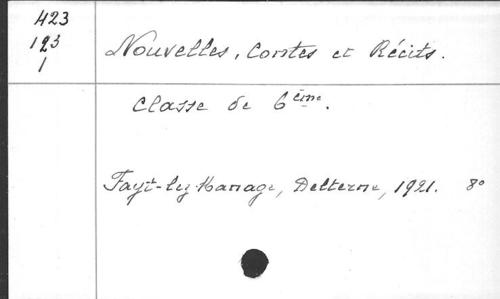 423
123
1
Nouvelles, Contes et Récits.
Classe de 6ème.
Fayt-lez-Manage, Delterne, 1921. 8º